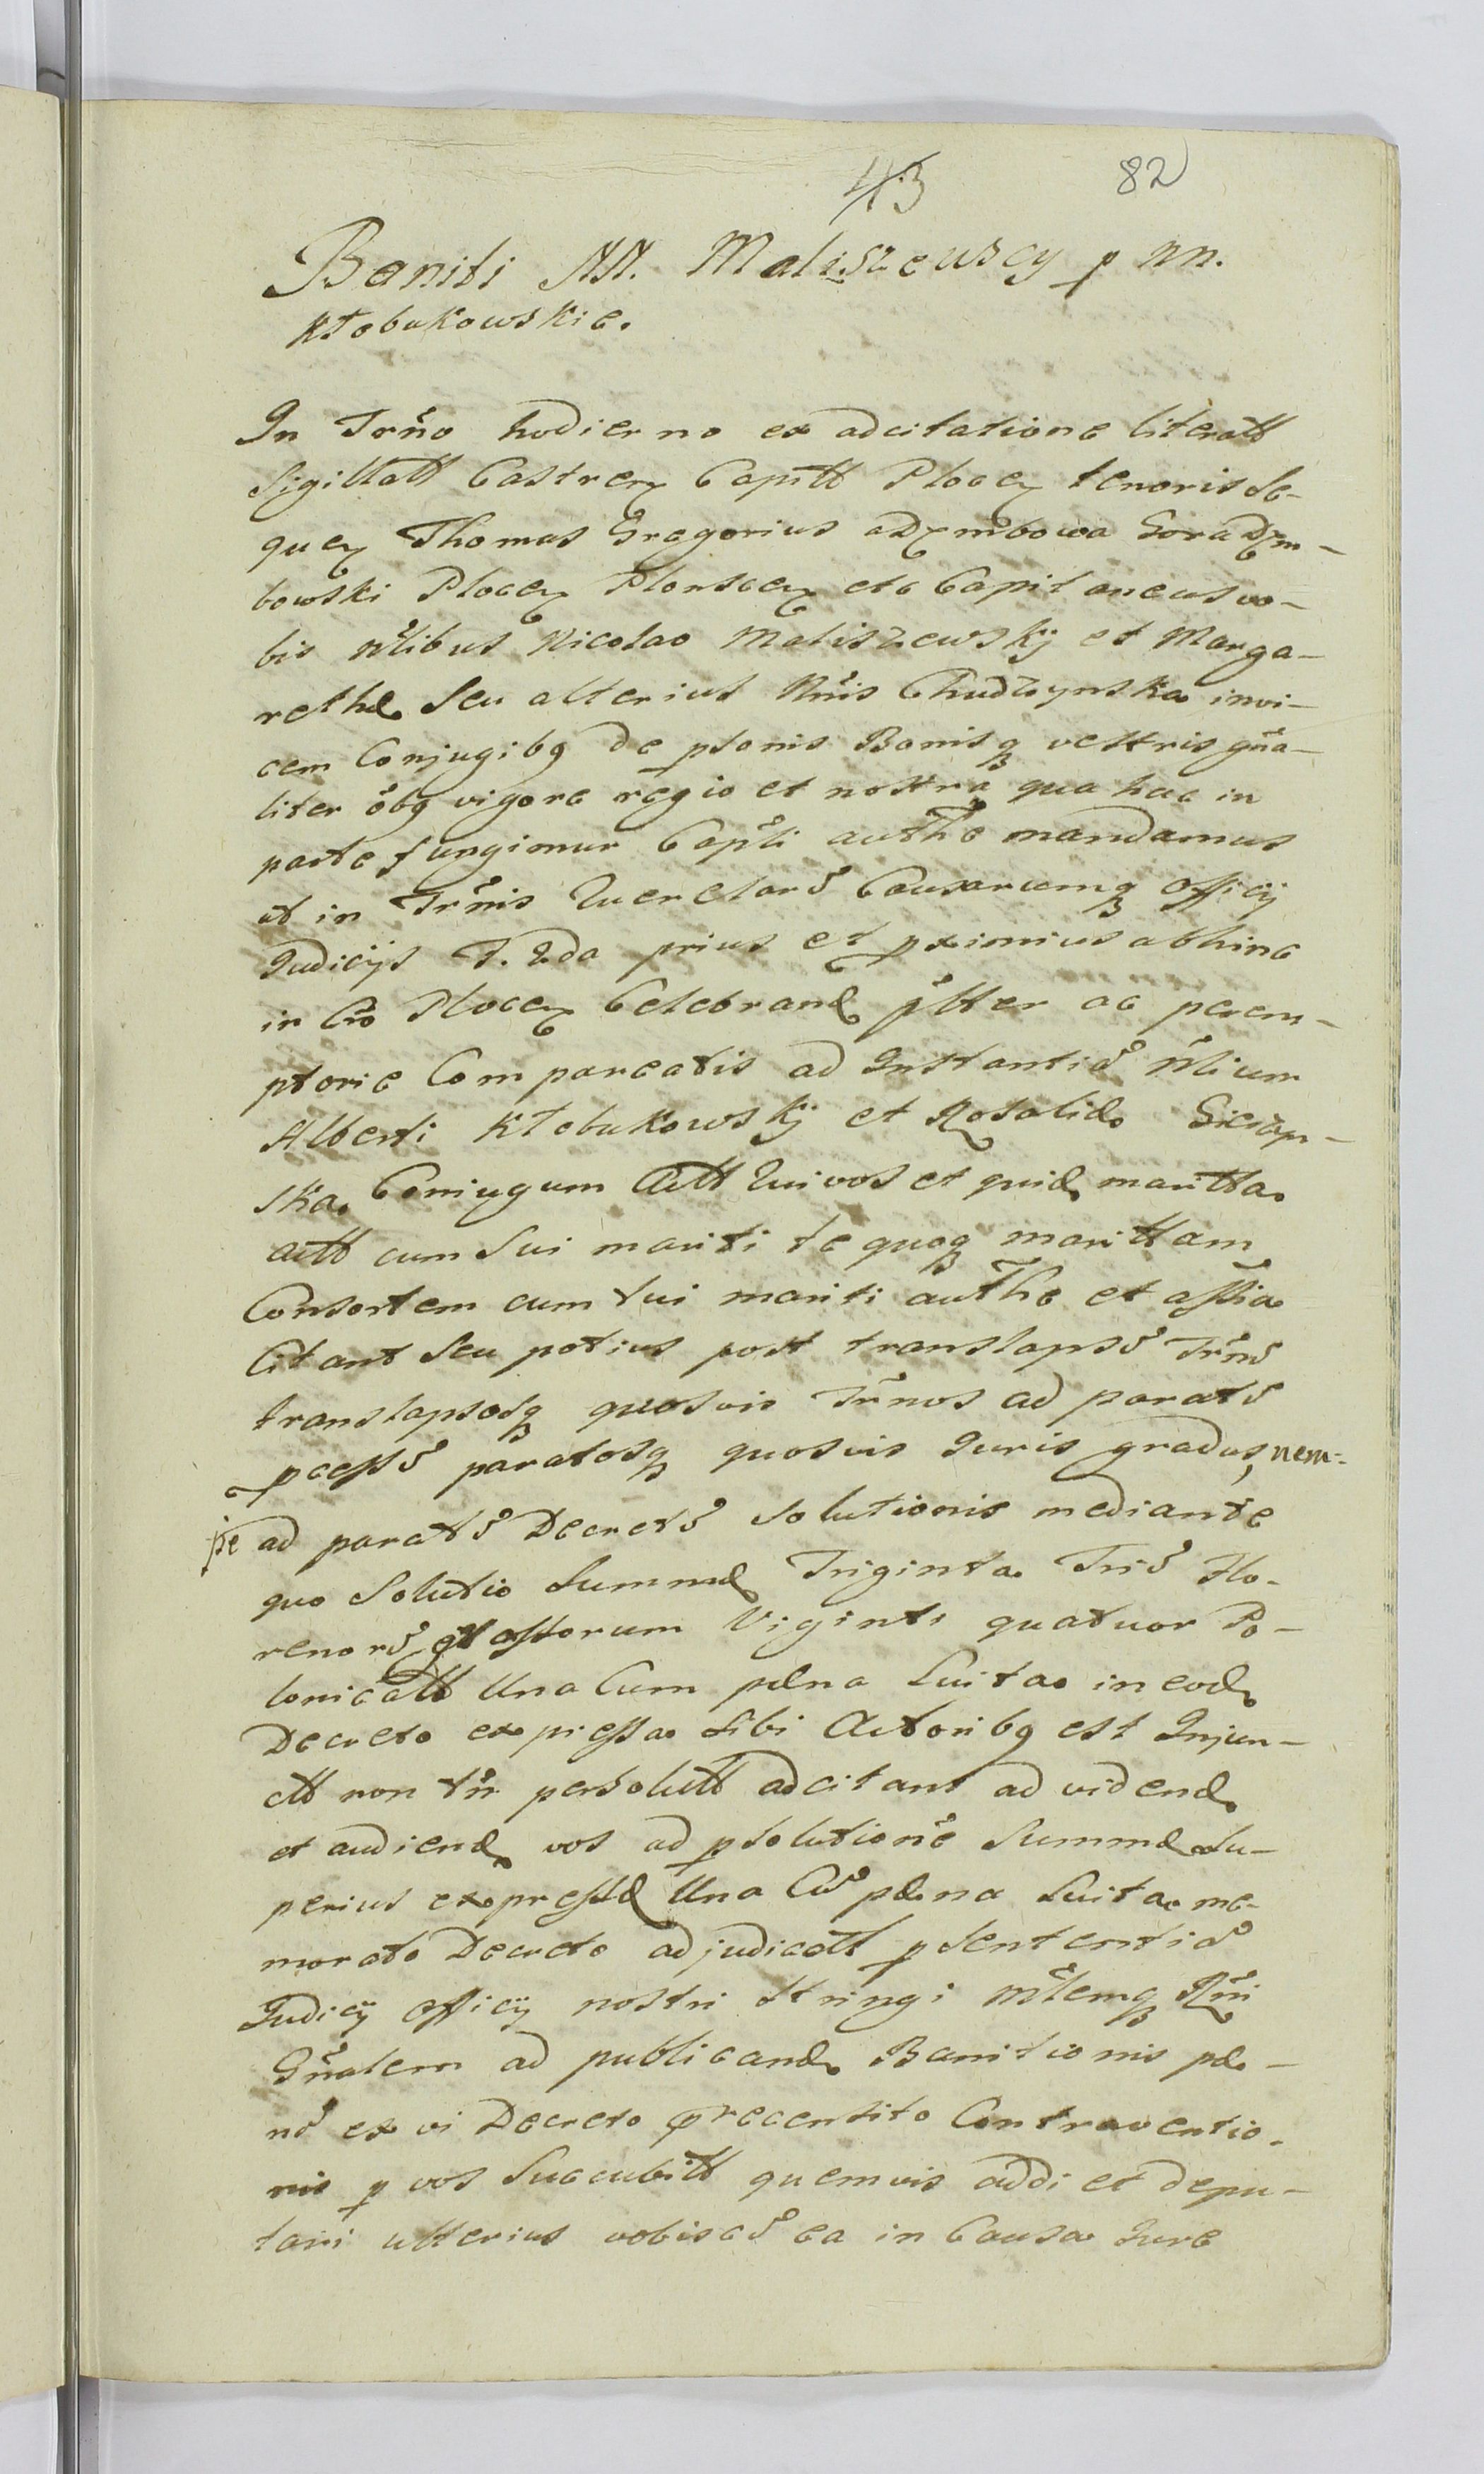 43 82
Baniti NN. Maliszewscy p nn.
Kłobukowskie.
In Trño hodierno ex adcitatione literatt
Sigillatt Castren Capitt Plocen tenoris Se-
quen Thomas Gregorius a Dzembowa Gora Dzem-
bowski Plocen Plonscen etc Capitaneus vo-
bis Nlibus Nicolao Maliszewskij et Marga-
rethæ Seu alterius Nñis Chudzynska invi-
cem Conjugibq de psonis Bonisq vestris gña-
liter õbq vigore regio et nostra qua hac in
parte fungimur Capłi authe mandamus
ut in Trñis Querelarũ Causarumq Officij
Judicijs F. 2da prius et pximius abhinc
in Cro Plocen Celebrand pltter ac perem-
ptorie Compareatis ad Instantiã Nlium
Alberti Kłobukowskij et Rosaliæ
ska Coniugum Actt Qui vos et quid maritta
actt cum Sui mariti te quoq marittam
Consortem cum tui mariti authe et assia
Citant Seu potius post translapsũ Trñũ
translapsosq quosvis Trños ad paratũ
pcessũ paratosq quosvis Juris gradus, nem-
pe ad paratũ Decretũ Solutionis mediante
quo Solutio Summæ Triginta Triũ Flo-
renorũ et grossorum Viginti quatuor Po-
lonicatt Una Cum pæna Luita in eod
Decreto expressa Sibi Actoribq est Injun-
ctt non tñ persolutt adcitant ad vidend
et audiend vos ad psolutionẽ Summæ Su-
perius expressæ Una Cũ pæna Luita me-
morato Decreto adjudicatt p Sententiã
Judicij officij nostri Stringi Mlemq Rñi
Gñalem ad publicand Banitionis pæ-
nã ex vi Decreto precensito Contraventio-
nis p vos Succubitt quemvis addi et depu-
tari ulterius vobiscũ ea in Causa Jure